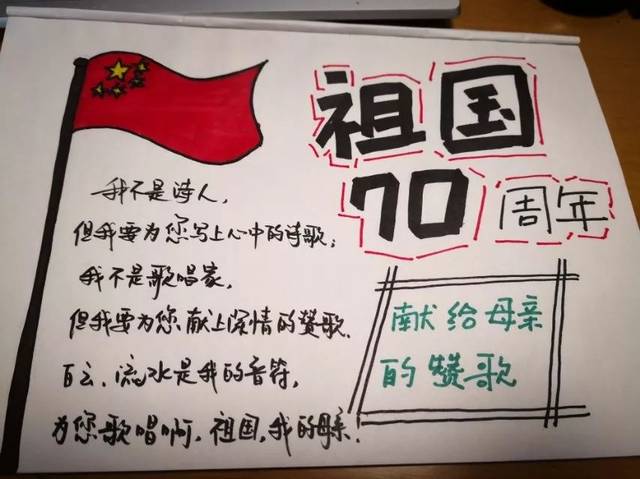 祖国
70周年
我不是诗人,
但我要为您写上心中的诗歌;
我不是歌唱家,
但我要为您献上深情的赞歌.
白云、流水是我的音符,
为您歌唱啊,祖国,我的母亲.
献给母亲
的赞歌